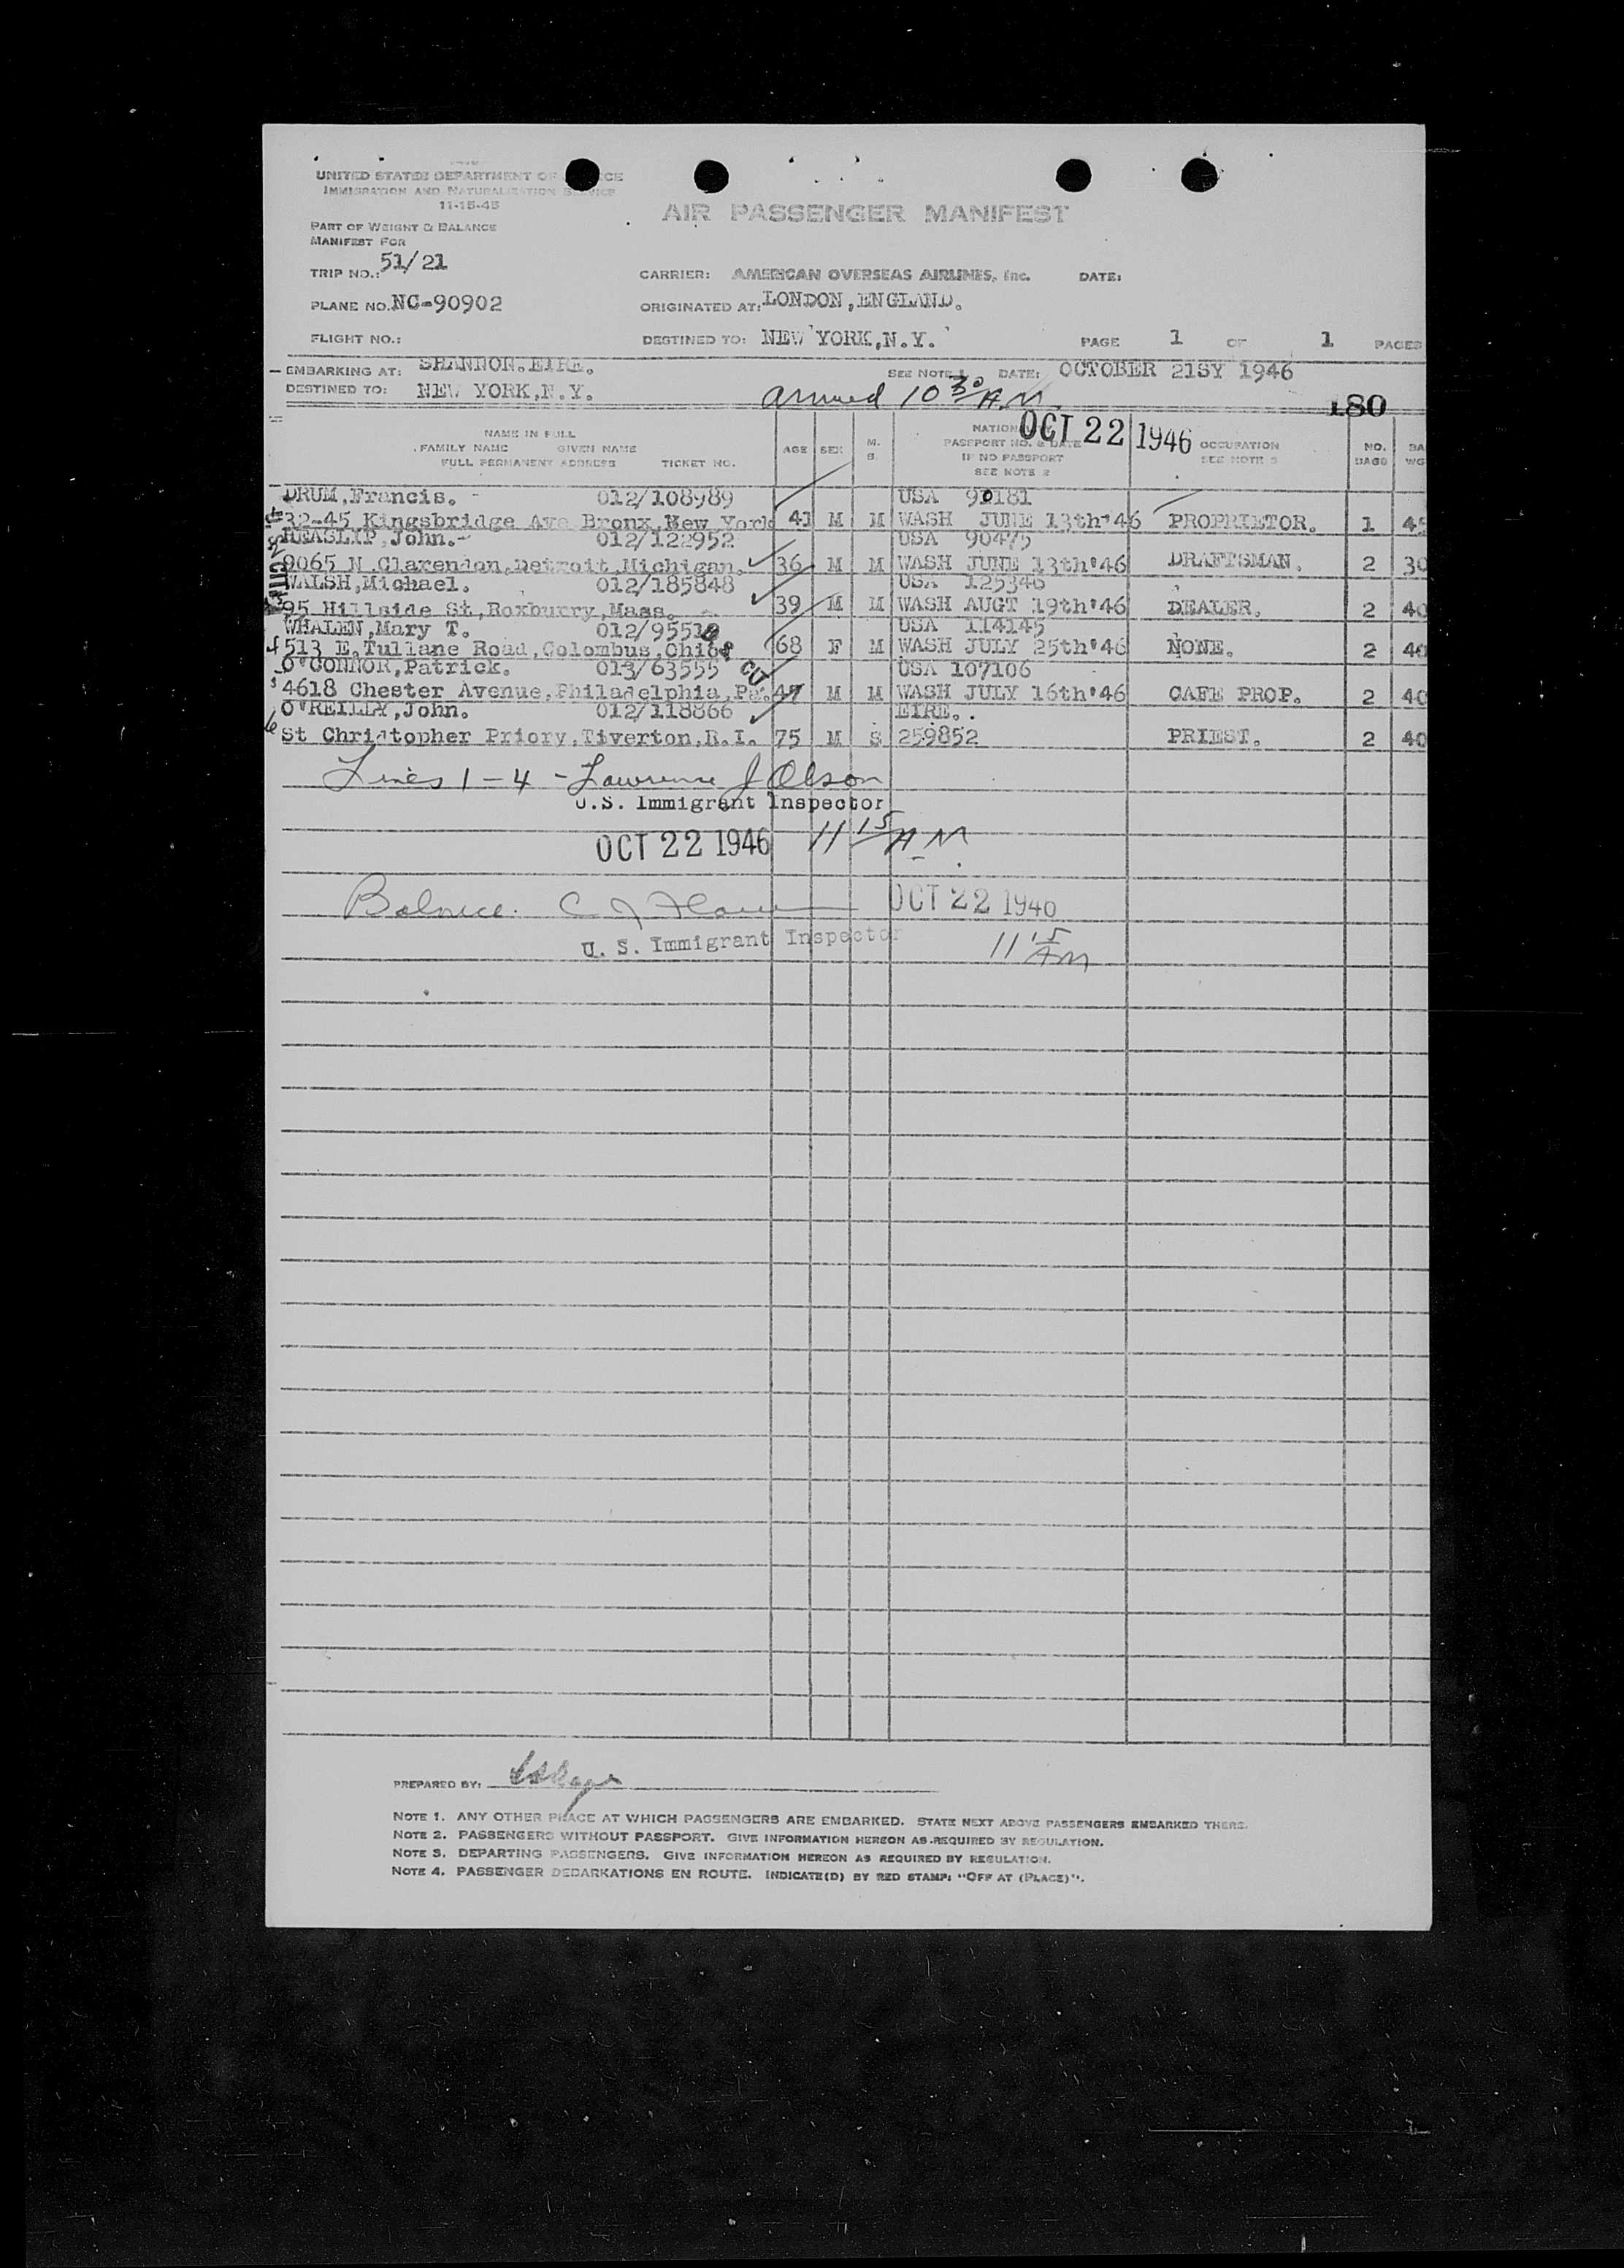 UNITED STATES DEPARTMENT OF
IMMIGRATION AND NATURALIZATION SERVICE
11-15-45
AIR PASSENGER MANIFEST
PART OF WEIGHT & BALANCE
MANIFEST FOR
TRIP NO.: 51/21
CARRIER: AMERICAN OVERSEAS AIRLINES, Inc. DATE:
PLANE NO. NC-90902
ORIGINATED AT: LONDON, ENGLAND.
FLIGHT NO.:
DESTINED TO: NEW YORK, N.Y.
PAGE 1 OF 1 PAGES
EMBARKING AT: SHANNON. EIRE.
SEE NOTE 1 DATE: OCTOBER 21SY 1946
DESTINED TO: NEW YORK, N.Y.
arrived 10 30 A.M.
180
OCT 22 1946
NAME IN FULL
FAMILY NAME GIVEN NAME
FULL PERMANENT ADDRESS TICKET NO.
AGE SEX M. S.
PASSPORT NO. & DATE
IF NO PASSPORT
SEE NOTE 2
OCCUPATION
SEE NOTE 3
NO. BAGS
BA WG
DRUM, Francis. 012/108989 USA 90181
32-45 Kingsbridge Ave Bronx, New York 41 M M WASH JUNE 13th'46 PROPRIETOR. 1 45
HEASLIP, John. 012/122952 USA 90475
9065 N Clarendon, Detroit, Michigan. 36 M M WASH JUNE 13th'46 DRAFTSMAN. 2 30
WALSH, Michael. 012/185848 USA 125346
95 Hillside St, Roxburry, Mass. 39 M M WASH AUGT 19th'46 DEALER. 2 40
WHALEN, Mary T. 012/95510 USA 114145
4 513 E. Tullane Road, Colombus, Ohio 68 F M WASH JULY 25th'46 NONE. 2 40
O'CONNOR, Patrick. 013/63555 USA 107106
4618 Chester Avenue, Philadelphia, Pa. 47 M M WASH JULY 16th'46 CAFE PROP. 2 40
O'REILLY, John. 012/118866 EIRE.
6 St Christopher Priory, Tiverton, R.I. 75 M S 259852 PRIEST. 2 40
Lines 1-4 - Lawrence J Olson
U.S. Immigrant Inspector
OCT 22 1946 11 15 A M
Balance. C J OCT 22 1946
U. S. Immigrant Inspector 11 15 AM
PREPARED BY:
NOTE 1. ANY OTHER PLACE AT WHICH PASSENGERS ARE EMBARKED. STATE NEXT ABOVE PASSENGERS EMBARKED THERE.
NOTE 2. PASSENGERS WITHOUT PASSPORT. GIVE INFORMATION HEREON AS REQUIRED BY REGULATION.
NOTE 3. DEPARTING PASSENGERS. GIVE INFORMATION HEREON AS REQUIRED BY REGULATION.
NOTE 4. PASSENGER DEBARKATIONS EN ROUTE. INDICATE(D) BY RED STAMP: "OFF AT (PLACE)".